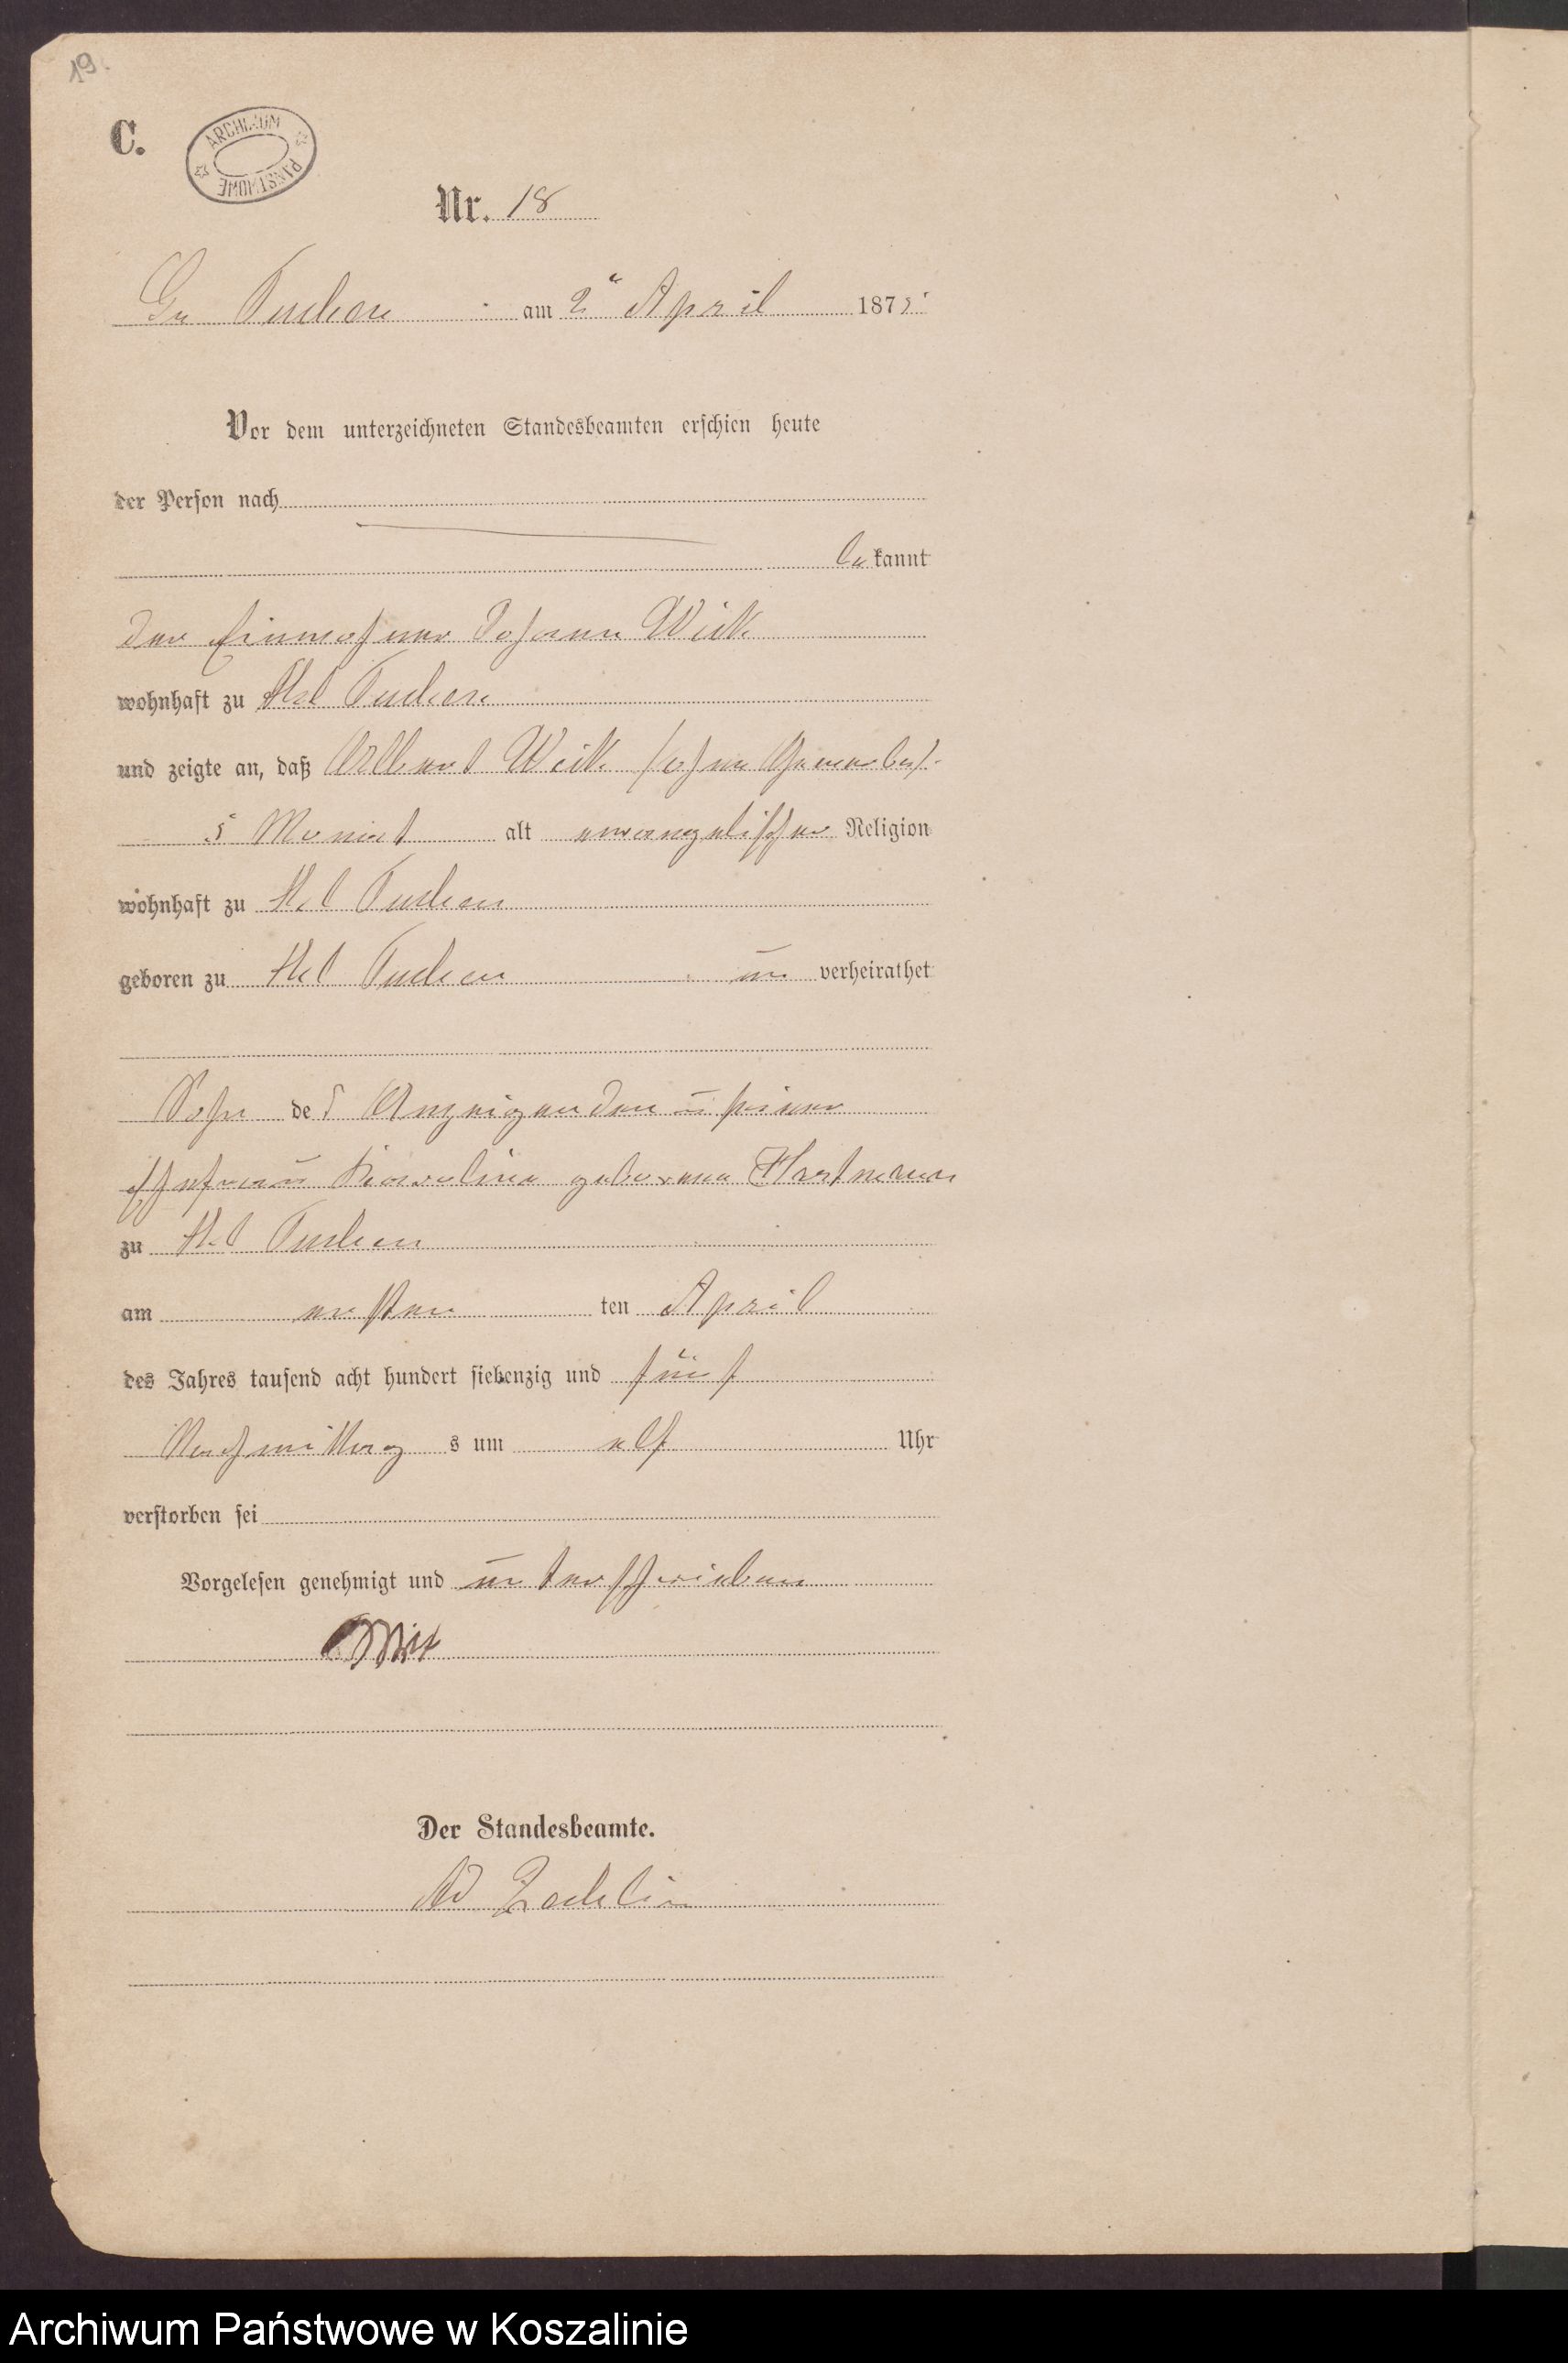 19.
C.
ARCHIWUM PAŃSTWOWE
Nr. 18
Gr Tuchen am 2ⁿ April 1875
Vor dem unterzeichneten Standesbeamten erschien heute
der Person nach
bekannt
der Einwohner Johann Witt
wohnhaft zu Kl Tuchen
und zeigte an, daß Albert Witt /ohne Gewerbe/
5 Monat alt evangelischer Religion
wohnhaft zu Kl Tuchen
geboren zu Kl Tuchen unverheirathet
Sohn des Anzeigenden u seiner
Ehefrau Karoline geborene Hartmann
zu Kl Tuchen
am ersten ten April
des Jahres tausend acht hundert siebenzig und fünf
Nachmittags um elf Uhr
verstorben sei
Vorgelesen genehmigt und unterschrieben
Witt
Der Standesbeamte.
Archiwum Państwowe w Koszalinie